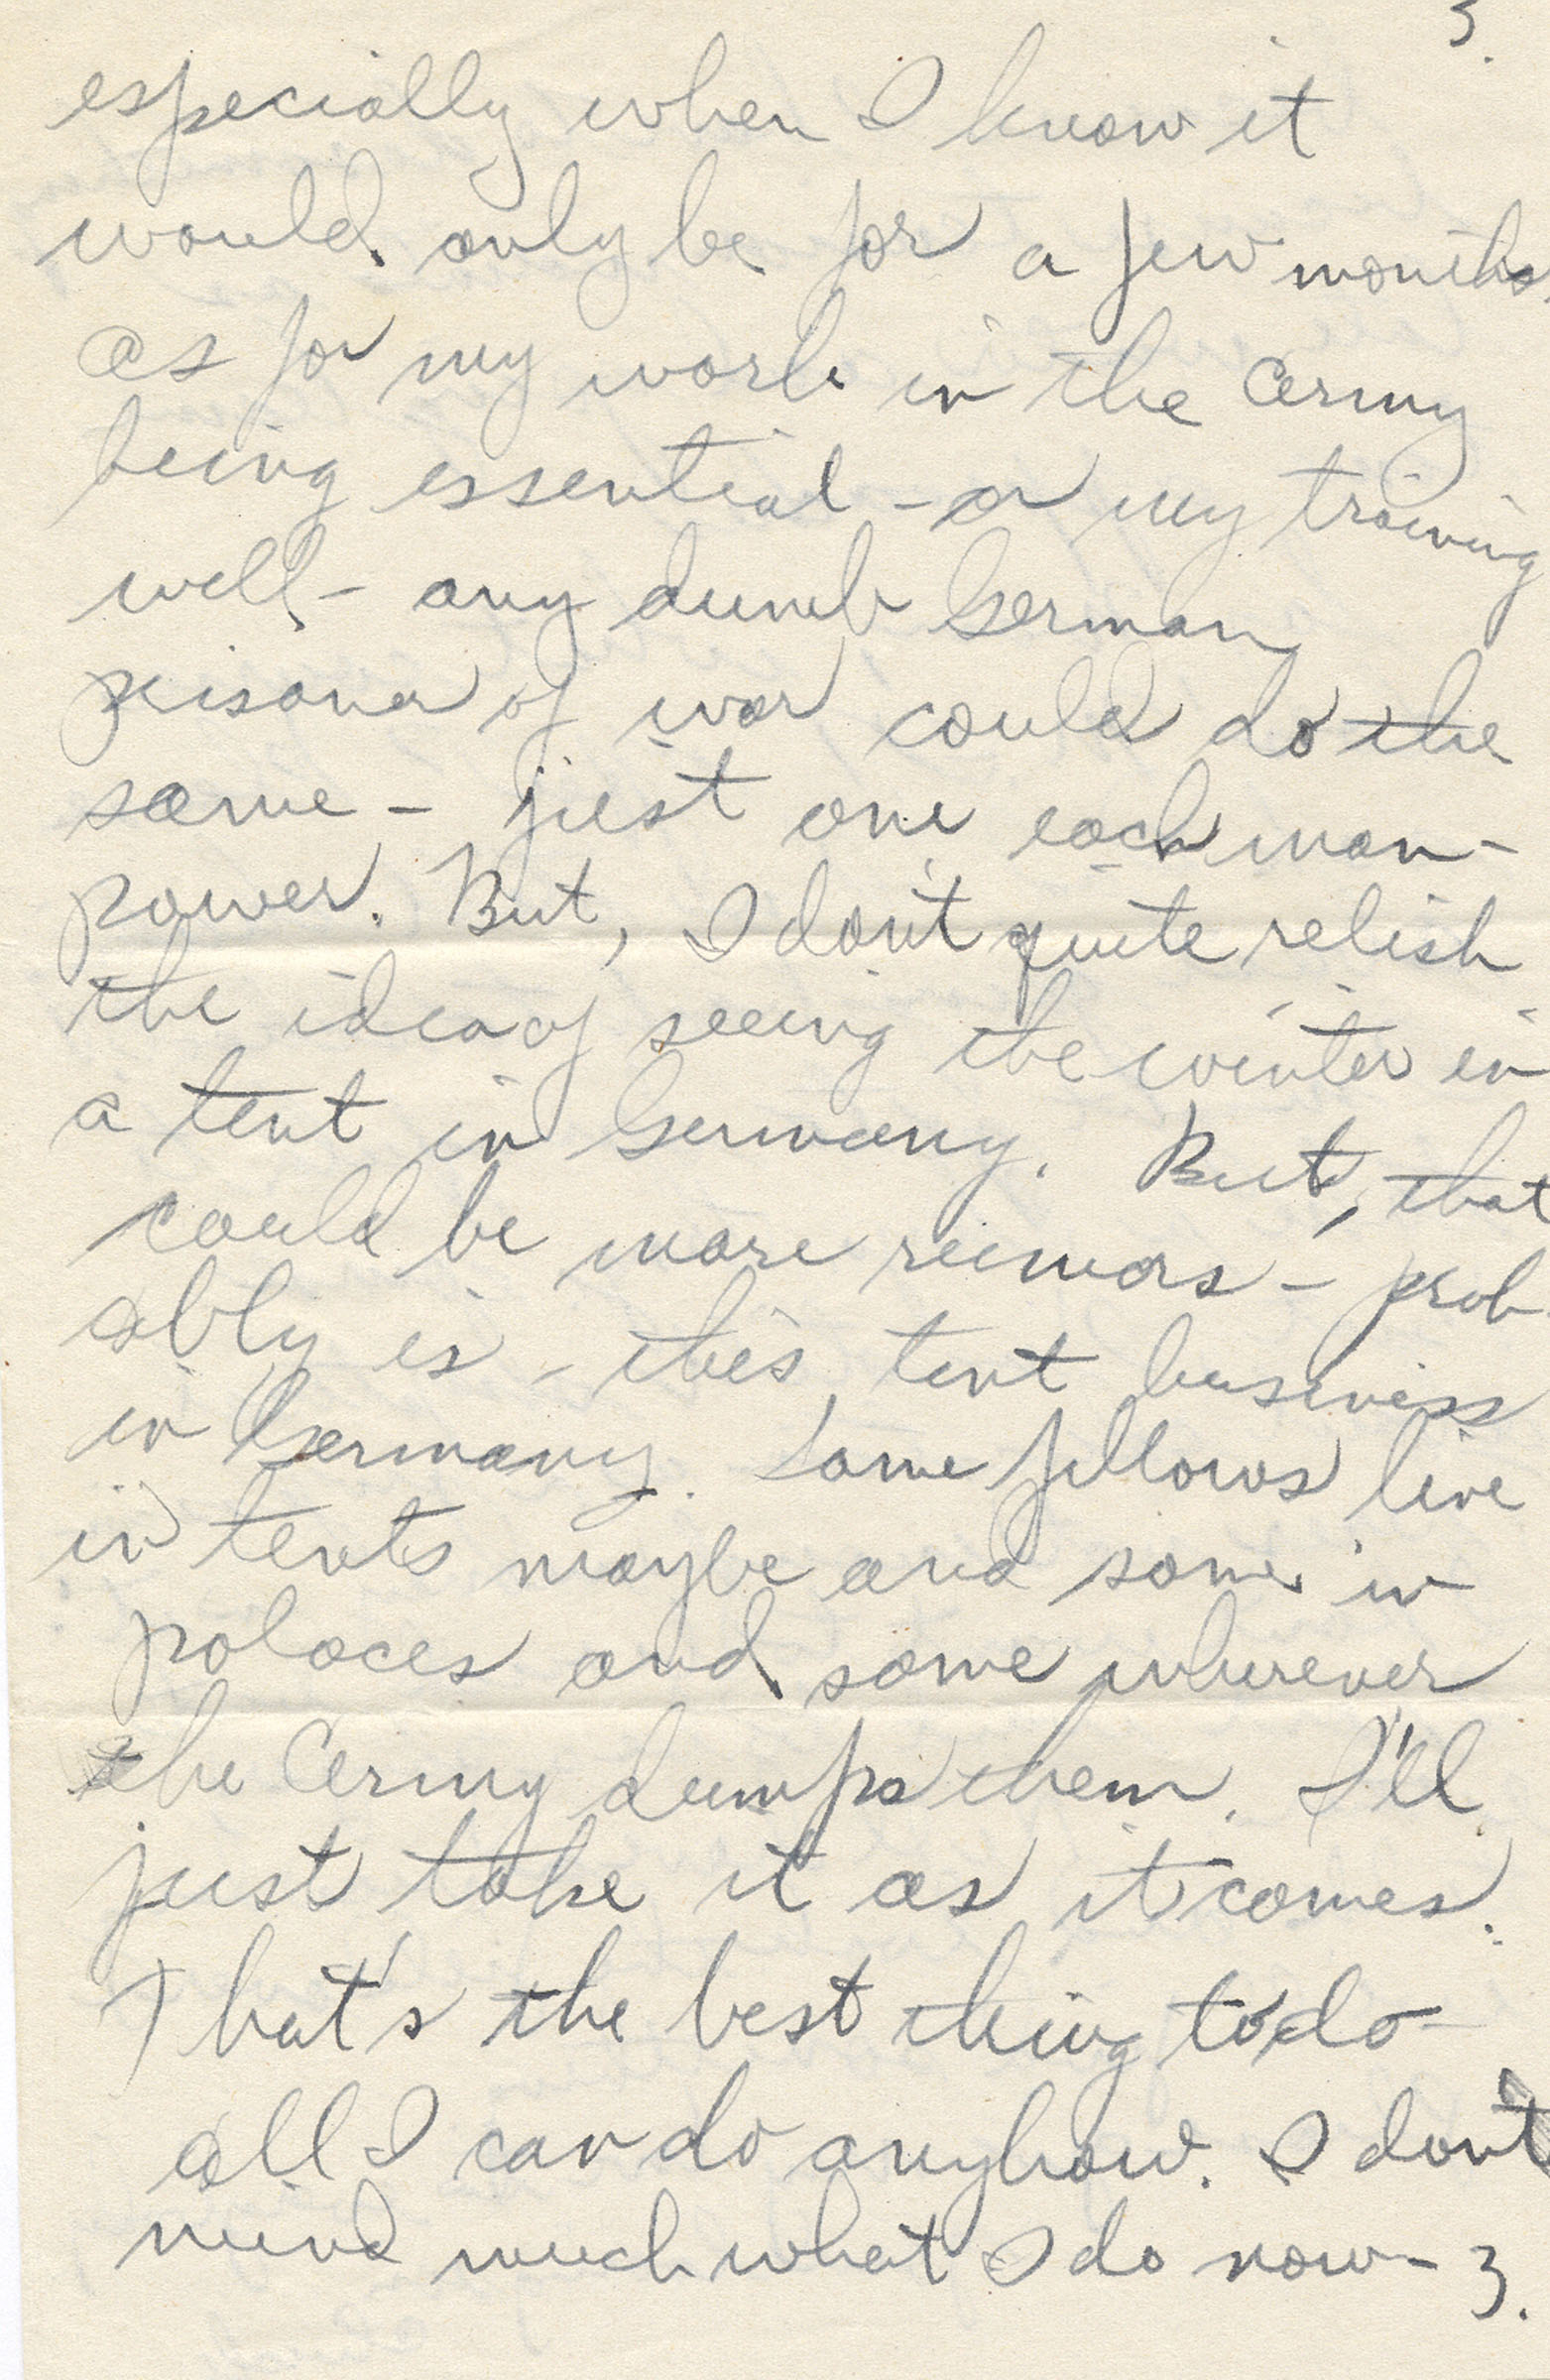 3.
especially when I know it
would only be for a few months.
As for my work in the Army
being essential - or my training
well - any dumb German
prisoner of war could do the
same - just one each man-
power. But, I don't quite relish
the idea of seeing the winter in
a tent in Germany. But, that
could be more rumors - prob-
ably is - this tent business
in Germany. Some fellows live
in tents maybe and some in
palaces and some wherever
the Army dumps them. I'll
just take it as it comes.
That's the best thing to do -
all I can do anyhow. I don't
mind much what I do now - 3.